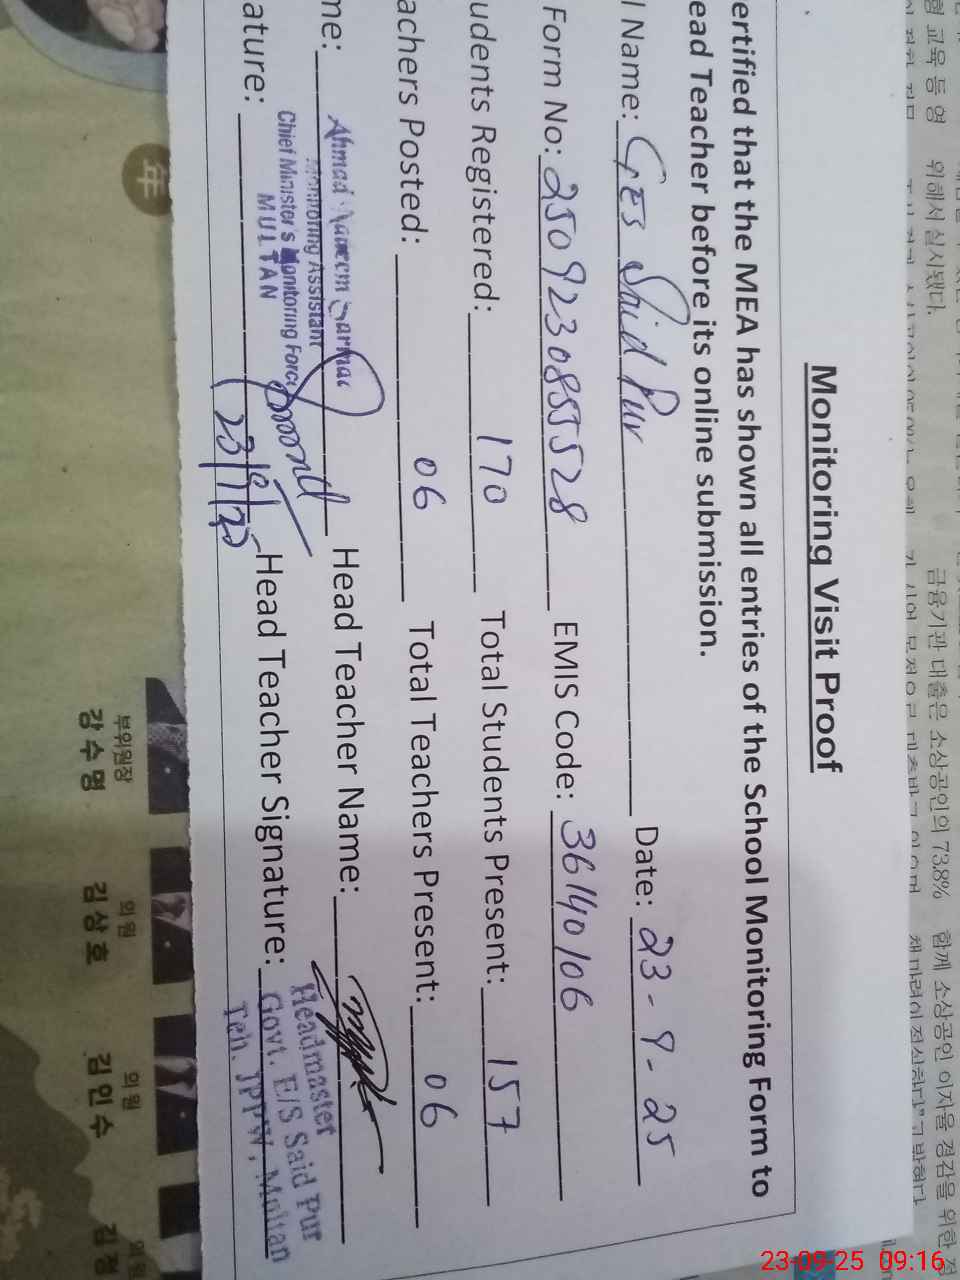 Monitoring Visit Proof
ertified that the MEA has shown all entries of the School Monitoring Form to
ead Teacher before its online submission.
l Name: GES Said Pur Date: 23-9-25
Form No: 250923085528 EMIS Code: 36140106
udents Registered: 170 Total Students Present: 157
achers Posted: 06 Total Teachers Present: 06
me: Head Teacher Name:
Ahmad Naeem Sarmad
Monitoring Assistant
Chief Minister's Monitoring Force
MULTAN
ature: 23/9/25 Head Teacher Signature:
Headmaster
Govt. E/S Said Pur
Teh. JPPW, Multan
23-09-25 09:16
형 교육 등 영
위해서 실시됐다.
금융기관 대출은 소상공인의 73.8%
함께 소상공인 이자율 경감을 위한 정
年
부위원장
강수명
의원
김상호
의원
김인수